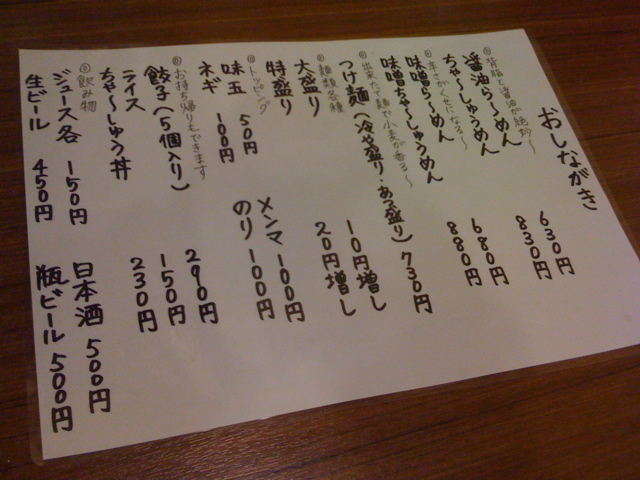 おしながき
背脂と醤油が絶妙〜
醤油ら〜めん 630円
ちゃ〜しゅうめん 830円
辛さがくせになる〜
味噌ら〜めん 680円
味噌ちゃ〜しゅうめん 880円
出来たて麺で小麦が香る〜
つけ麺(冷や盛り・あつ盛り) 730円
麺類各種
大盛り 10円増し
特盛り 20円増し
トッピング
味玉 50円 メンマ 100円
ネギ 100円 のり 100円
お持ち帰りもできます
餃子(5個入り) 290円
ライス 150円
ちゃ〜しゅう丼 230円
飲み物
ジュース各 150円 日本酒 500円
生ビール 450円 瓶ビール 500円